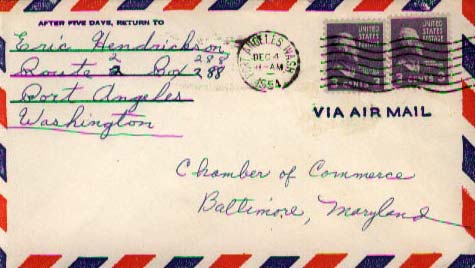 AFTER FIVE DAYS, RETURN TO
Eric Hendrickson
Route 2 Box 288
Port Angeles
Washington
PORT ANGELES, WASH.
DEC 4
AM
1954
3 CENTS 3
3 CENTS 3
VIA AIR MAIL
Chamber of Commerce
Baltimore, Maryland